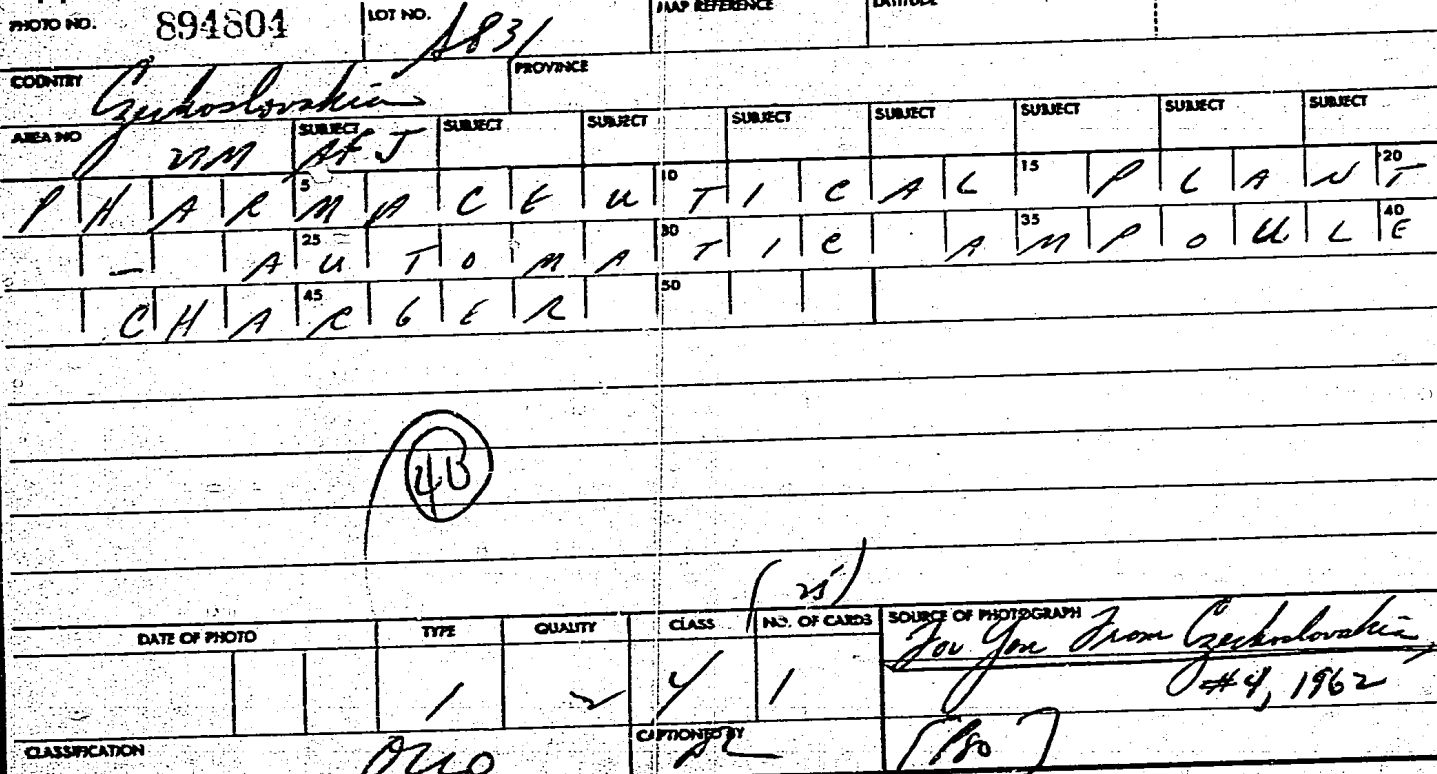 PHOTO NO. 894804 LOT NO. A831 MAP REFERENCE LATITUDE
COUNTRY Czechoslovakia PROVINCE
AREA NO SUBJECT SUBJECT SUBJECT SUBJECT SUBJECT SUBJECT SUBJECT SUBJECT
PHARMACEUTICAL PLANT 5 10 15 20
- AUTOMATIC AMPOULE 25 30 35 40
CHARGER 45 50
4B
(25)
DATE OF PHOTO TYPE QUALITY CLASS NO. OF CARDS SOURCE OF PHOTOGRAPH For You From Czechoslovakia
1 2 4 1 #4, 1962
CLASSIFICATION CAPTIONED BY